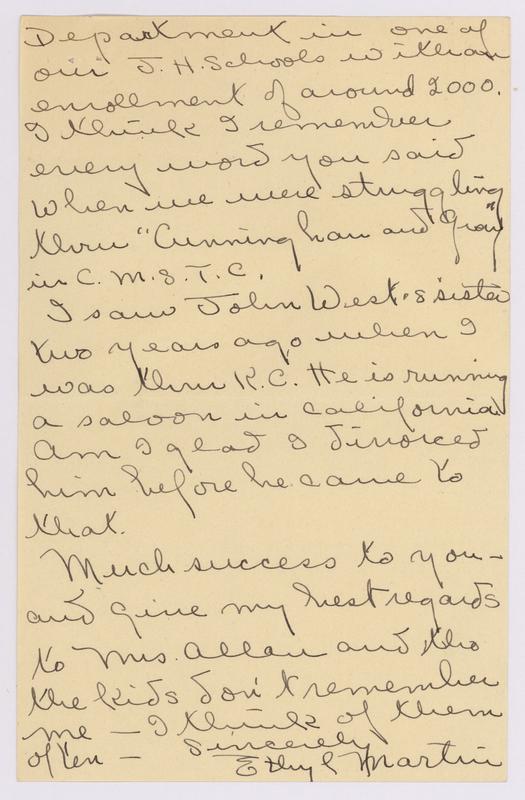 Department in one of
our J. H. Schools with an
enrollment of around 2000.
I think I remember
every word you said
when we were struggling
thru "Cunningham and Gray"
in C. M. S. T. C.
I saw John West's sister
two years ago when I
was thru K.C. He is running
a saloon in California
Am I glad I divorced
him before he came to
that.
Much success to you -
and give my best regards
to Mrs. Allan and tho
the kids don't remember
me - I think of them
often - Sincerely
Ethyl Martin